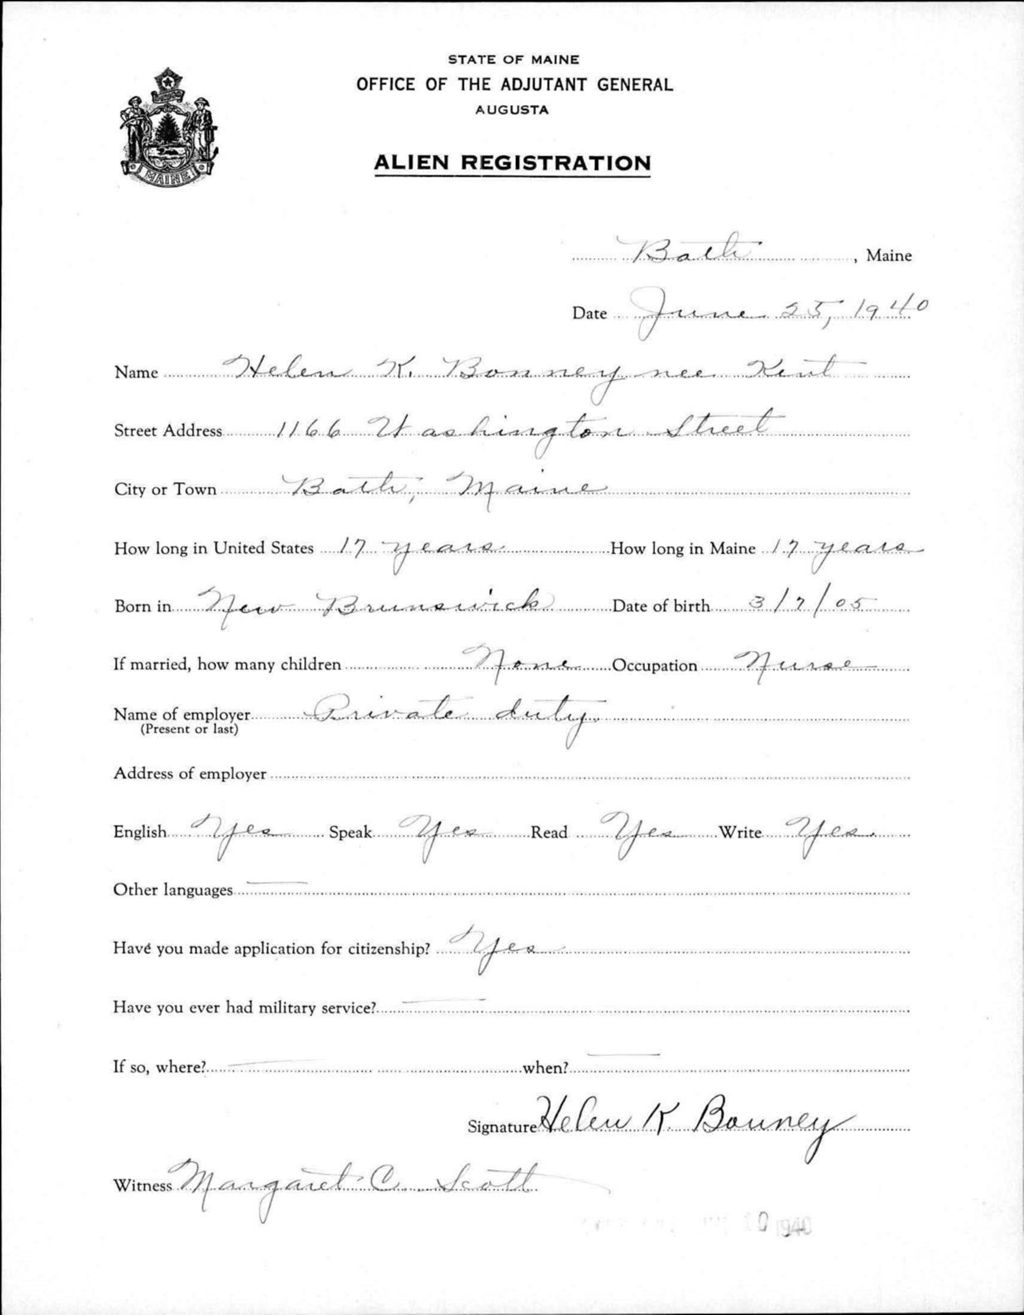 STATE OF MAINE
OFFICE OF THE ADJUTANT GENERAL
AUGUSTA
ALIEN REGISTRATION
MAINE
Bath, Maine
Date June 25, 1940
Name Helen K. Bonney nee Kent
Street Address 1166 Washington Street
City or Town Bath, Maine
How long in United States 17 years How long in Maine 17 years
Born in New Brunswick Date of birth 3/7/05
If married, how many children None Occupation Nurse
Name of employer Private duty.
(Present or last)
Address of employer
English Yes Speak Yes Read Yes Write Yes.
Other languages —
Have you made application for citizenship? Yes
Have you ever had military service? —
If so, where? — when? —
Signature Helen K Bonney
Witness Margaret C. Scott
1940